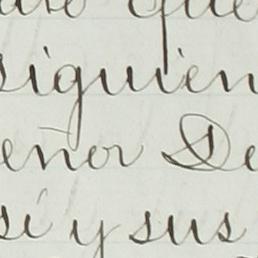 que
siguien
eñor De
si y sus